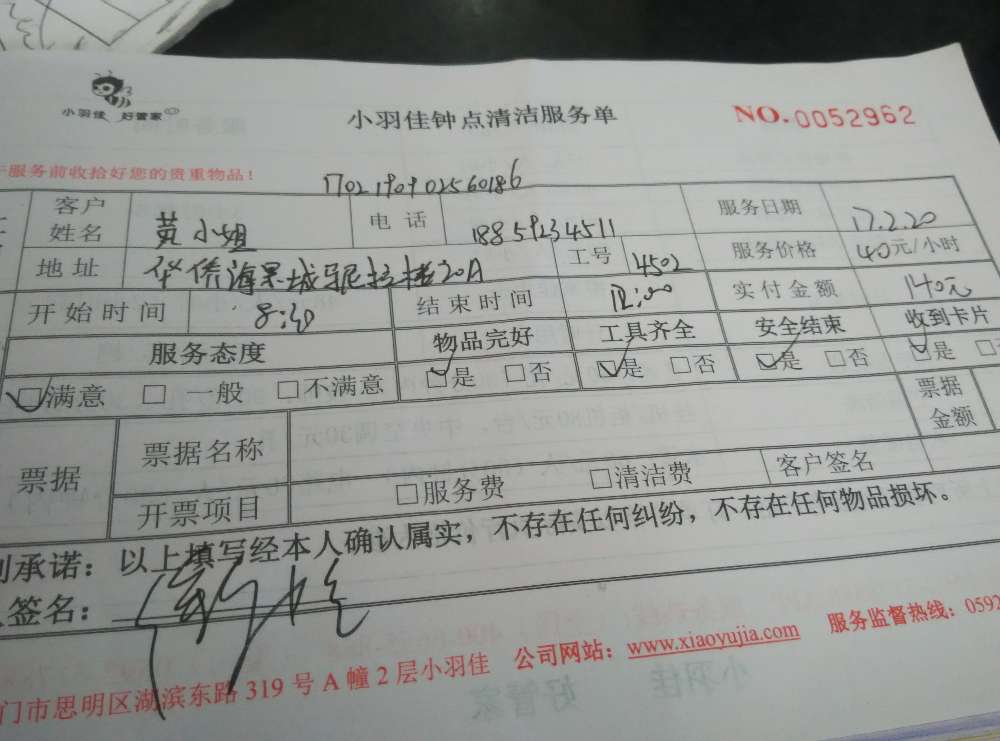 小羽佳 好管家
小羽佳钟点清洁服务单
NO.0052962
服务前收拾好您的贵重物品！
1702190902560186
客户姓名 黄小姐 电话 18859234511 服务日期 17.2.20
地址 华侨海景城 20A 工号 4502 服务价格 40元/小时
开始时间 8:30 结束时间 12:00 实付金额 140元
服务态度 物品完好 工具齐全 安全结束 收到卡片
☑满意 □一般 □不满意 ☑是 □否 ☑是 □否 ☑是 □否 ☑是 □
票据 票据名称 票据金额
开票项目 □服务费 □清洁费 客户签名
承诺：以上填写经本人确认属实，不存在任何纠纷，不存在任何物品损坏。
签名：
门市思明区湖滨东路 319 号 A 幢 2 层小羽佳 公司网站：www.xiaoyujia.com 服务监督热线：0592